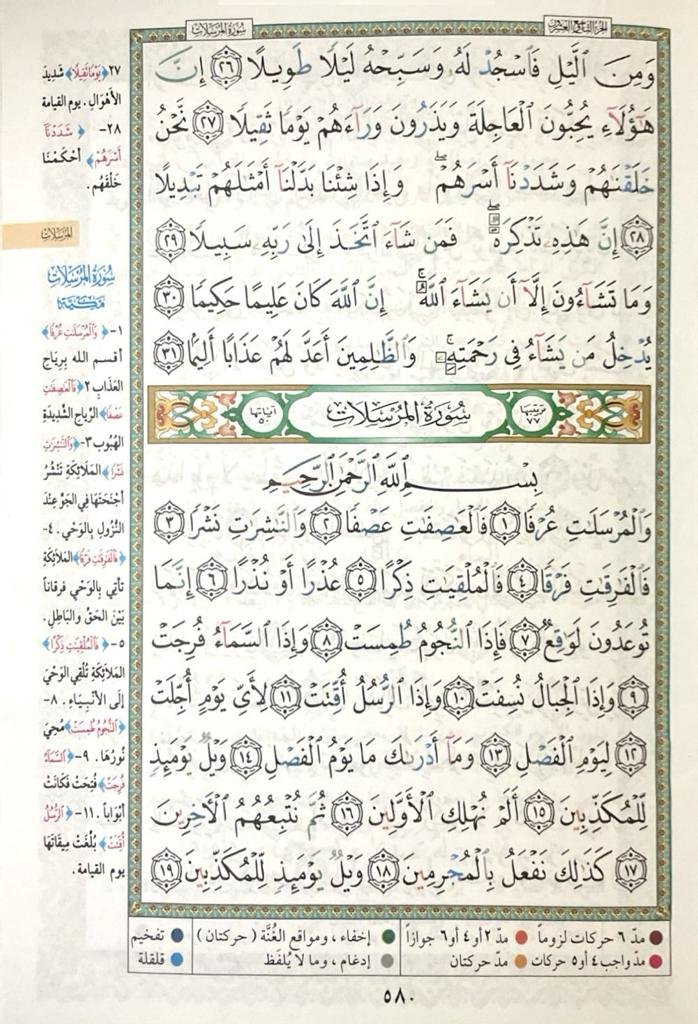 الجزء التاسع والعشرون
سُورَةُ المُرْسَلَات
وَمِنَ ٱلَّيْلِ فَٱسْجُدْ لَهُۥ وَسَبِّحْهُ لَيْلًا طَوِيلًا ٢٦ إِنَّ
هَٰٓؤُلَآءِ يُحِبُّونَ ٱلْعَاجِلَةَ وَيَذَرُونَ وَرَآءَهُمْ يَوْمًا ثَقِيلًا ٢٧ نَّحْنُ
خَلَقْنَٰهُمْ وَشَدَدْنَآ أَسْرَهُمْ ۖ وَإِذَا شِئْنَا بَدَّلْنَآ أَمْثَٰلَهُمْ تَبْدِيلًا
٢٨ إِنَّ هَٰذِهِۦ تَذْكِرَةٌ ۖ فَمَن شَآءَ ٱتَّخَذَ إِلَىٰ رَبِّهِۦ سَبِيلًا ٢٩
وَمَا تَشَآءُونَ إِلَّآ أَن يَشَآءَ ٱللَّهُ ۚ إِنَّ ٱللَّهَ كَانَ عَلِيمًا حَكِيمًا ٣٠
يُدْخِلُ مَن يَشَآءُ فِى رَحْمَتِهِۦ ۚ وَٱلظَّٰلِمِينَ أَعَدَّ لَهُمْ عَذَابًا أَلِيمًۢا ٣١
ترتيبها ٧٧ سُورَةُ المُرْسَلَات آياتها ٥٠
بِسْمِ ٱللَّهِ ٱلرَّحْمَٰنِ ٱلرَّحِيمِ
وَٱلْمُرْسَلَٰتِ عُرْفًا ١ فَٱلْعَٰصِفَٰتِ عَصْفًا ٢ وَٱلنَّٰشِرَٰتِ نَشْرًا ٣
فَٱلْفَٰرِقَٰتِ فَرْقًا ٤ فَٱلْمُلْقِيَٰتِ ذِكْرًا ٥ عُذْرًا أَوْ نُذْرًا ٦ إِنَّمَا
تُوعَدُونَ لَوَٰقِعٌ ٧ فَإِذَا ٱلنُّجُومُ طُمِسَتْ ٨ وَإِذَا ٱلسَّمَآءُ فُرِجَتْ
٩ وَإِذَا ٱلْجِبَالُ نُسِفَتْ ١٠ وَإِذَا ٱلرُّسُلُ أُقِّتَتْ ١١ لِأَىِّ يَوْمٍ أُجِّلَتْ
١٢ لِيَوْمِ ٱلْفَصْلِ ١٣ وَمَآ أَدْرَىٰكَ مَا يَوْمُ ٱلْفَصْلِ ١٤ وَيْلٌ يَوْمَئِذٍ
لِّلْمُكَذِّبِينَ ١٥ أَلَمْ نُهْلِكِ ٱلْأَوَّلِينَ ١٦ ثُمَّ نُتْبِعُهُمُ ٱلْءَاخِرِينَ
١٧ كَذَٰلِكَ نَفْعَلُ بِٱلْمُجْرِمِينَ ١٨ وَيْلٌ يَوْمَئِذٍ لِّلْمُكَذِّبِينَ ١٩
٢٧ ﴿يَوْمًا ثَقِيلًا﴾ شَدِيدَ
الأَهْوَالِ. يوم القيامة
٢٨- ﴿شَدَدْنَآ
أَسْرَهُمْ﴾ أَحْكَمْنَا
خَلْقَهُم.
المُرسَلات
سُورَةُ المُرْسَلَات
مَكِّيَّة
١- ﴿وَٱلْمُرْسَلَٰتِ عُرْفًا﴾
أقسم الله بِرِيَاحِ
العَذَابِ ٢ ﴿فَٱلْعَٰصِفَٰتِ
عَصْفًا﴾ الرِّيَاح الشَّدِيدَةِ
الهُبُوبِ ٣- ﴿وَٱلنَّٰشِرَٰتِ
نَشْرًا﴾ المَلَائِكَةِ تَنْشُرُ
أَجْنِحَتَهَا فِي الجَوِّ عِنْدَ
النُّزُولِ بِالوَحْيِ. ٤-
﴿فَٱلْفَٰرِقَٰتِ فَرْقًا﴾ المَلَائِكَةِ
تأتي بِالوَحْيِ فرقاناً
بَيْنَ الحَقِّ وَالبَاطِلِ.
٥- ﴿فَٱلْمُلْقِيَٰتِ ذِكْرًا﴾
المَلَائِكَةِ تُلْقِي الوَحْيَ
إلى الأَنْبِيَاءِ. ٨-
﴿ٱلنُّجُومُ طُمِسَتْ﴾ مُحِيَ
نُورُهَا. ٩- ﴿ٱلسَّمَآءُ
فُرِجَتْ﴾ فُتِحَتْ فَكَانَتْ
أَبْوَاباً. ١١- ﴿ٱلرُّسُلُ
أُقِّتَتْ﴾ بُلِّغَتْ مِيقَاتَهَا
يوم القيامة.
مدّ ٦ حركات لزوماً مدّ ٢ أو ٤ أو ٦ جوازاً إخفاء، ومواقع الغُنَّة (حركتان) تفخيم
مدّ واجب ٤ أو ٥ حركات مدّ حركتان إدغام، وما لا يُلفَظ قلقلة
٥٨٠